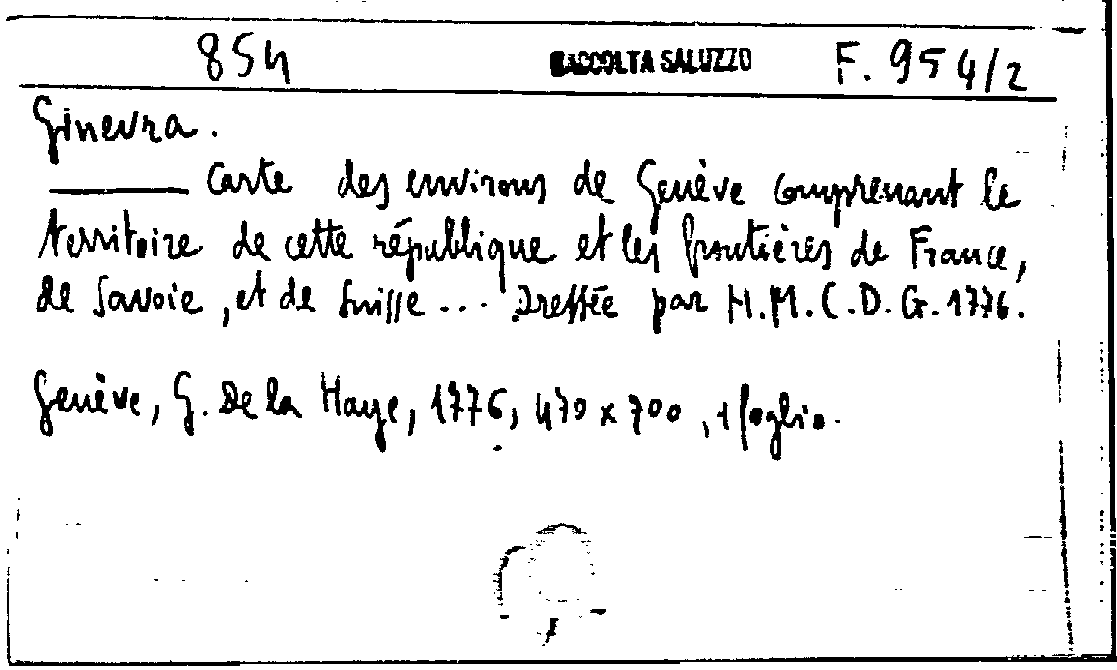 854 RACCOLTA SALUZZO F. 954/2
Ginevra.
Carte des environs de Genève comprenant le
territoire de cette république et les frontières de France,
de Savoie, et de Suisse... Dressée par M.M.C.D.G. 1776.
Genève, G. De la Haye, 1776, 470 x 700, 1 foglio.